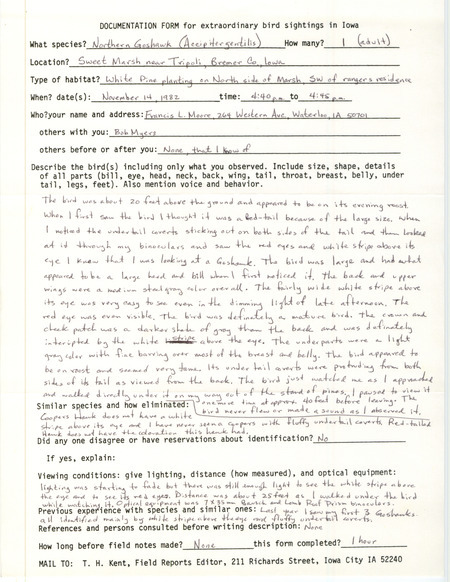 DOCUMENTATION FORM for extraordinary bird sightings in Iowa
What species? Northern Goshawk (Accipter gentilis) How many? 1 (adult)
Location? Sweet Marsh near Tripoli, Bremer Co, Iowa
Type of habitat? White Pine planting on North side of Marsh, SW of rangers residence
When? date(s): November 14, 1982 time: 4:40 pm to 4:45 pm
Who? your name and address: Francis L. Moore, 264 Western Ave, Waterloo, IA 50701
others with you: Bob Myers
others before or after you: None, that I know of
Describe the bird(s) including only what you observed. Include size, shape, details
of all parts (bill, eye, head, neck, back, wing, tail, throat, breast, belly, under
tail, legs, feet). Also mention voice and behavior.
The bird was about 20 feet above the ground and appeared to be on its evening roost.
When I first saw the bird I thought it was a Red-tail because of the large size. When
I noticed the undertail coverts sticking out on both sides of the tail and then looked
at it through my binoculars and saw the red eyes and white stripe above its
eye I knew that I was looking at a Goshawk. The bird was large and had what
appeared to be a large head and bill when I first noticed it. The back and upper
wings were a medium steel gray color overall. The fairly wide white stripe above
its eye was very easy to see even in the dimming light of late afternoon. The
red eye was even visible. The bird was definately a mature bird. The crown and
cheek patch was a darker shade of gray then the back and was definately
interupted by the white stripe above the eye. The underparts were a light
gray color with fine barring over most of the breast and belly. The bird appeared to
be on roost and seemed very tame. Its under tail coverts were protruding from both
sides of its tail as viewed from the back. The bird just watched me as I approached
and walked directly under it on my way out of the stand of pines, I paused to view it
one more time at approx 40 feet before leaving. The
Similar species and how eliminated: bird never flew or made a sound as I observed it.
Coopers Hawk does not have a white
stripe above its eye and I have never seen a Coopers with fluffy undertail coverts. Red-tailed
Hawk does not have the coloration this hawk had.
Did any one disagree or have reservations about identification? No
If yes, explain:
Viewing conditions: give lighting, distance (how measured), and optical equipment:
lighting was starting to fade but there was still enough light to see the white stripe above
the eye and to see its red eyes. Distance was about 25 feet as I walked under the bird
while watching it. Optical equipment was 7x35mm Bausch and Lomb Roof Prism binoculars.
Previous experience with species and similar ones: Last year I saw my first 3 Goshawks
all identified mainly by white stripe above the eye and fluffy undertail coverts.
References and persons consulted before writing description: None
How long before field notes made? None this form completed? 1 hour
MAIL TO: T. H. Kent, Field Reports Editor, 211 Richards Street, Iowa City IA 52240